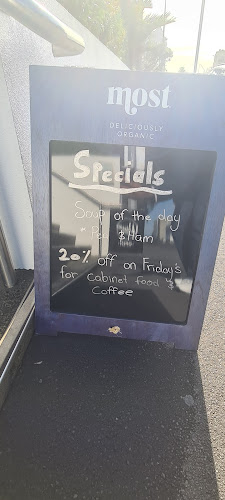 most
DELICIOUSLY
ORGANIC
Specials
Soup of the day
Ham
20% off on Friday's
for cabinet food &
Coffee